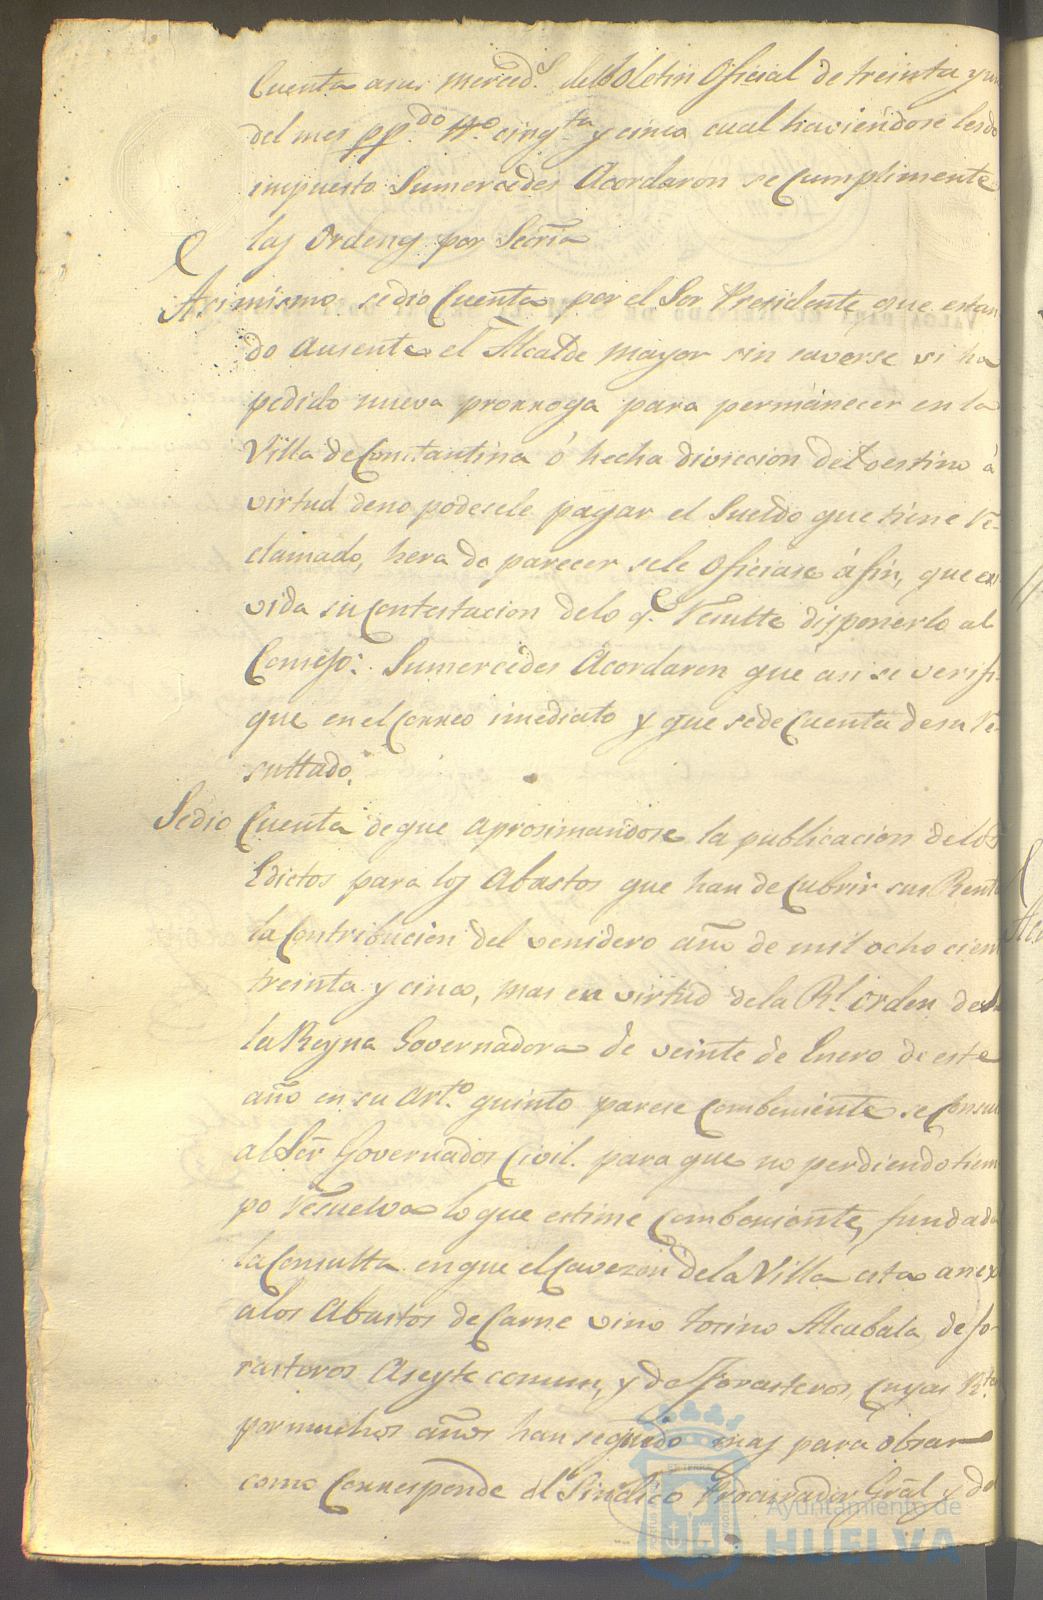 Cuenta a sus merced.s del Boletin Oficial de treinta y un
del mes pp.do N.o cinq.ta y cinco cual haviendose leido
impuesto Sumercedes Acordaron se Cumplimente
las Ordenes por Seoria
Asimismo se dio Cuenta por el Sor Presidente que estan
do Ausente el Alcalde mayor sin saverse si ha
pedido nueva prorroga para permanecer en la
Villa de Constantina ó hecha divicion del destino á
virtud de no podersele pagar el Sueldo que tiene re-
clamado, hera de parecer se le Oficiase á fin, que
vida su Contestacion de lo q.e Resulte disponerlo al
Consejo: Sumercedes Acordaron que asi se verifi-
que en el Correo imediato y que se de Cuenta de su re-
sultado.
Se dio Cuenta de que aprosimandose la publicacion de los
Edictos para los Abastos que han de Cubrir sus Rent
la Contribucion del venidero año de mil ocho cien
treinta y cinco, mas en virtud de la Rl. Orden de
la Reyna Governadora de veinte de Enero de este
año en su Art.o quinto parese Combeniente se Consu
al Sor Governador Civil. para que no perdiendo tiem
po Resuelva lo que estime Combeniente, fundada
la Consulta en que el Cavezon de la Villa esta anexo
a los Abastos de Carne vino tosino Alcabala de fo-
rasteros Aseyte comun, y de Forasteros, Cuyas R.tas
por muchos años han seguido mas para obrar
como Corresponde el Sindico Procurador Gral y de
Ayuntamiento de
HUELVA